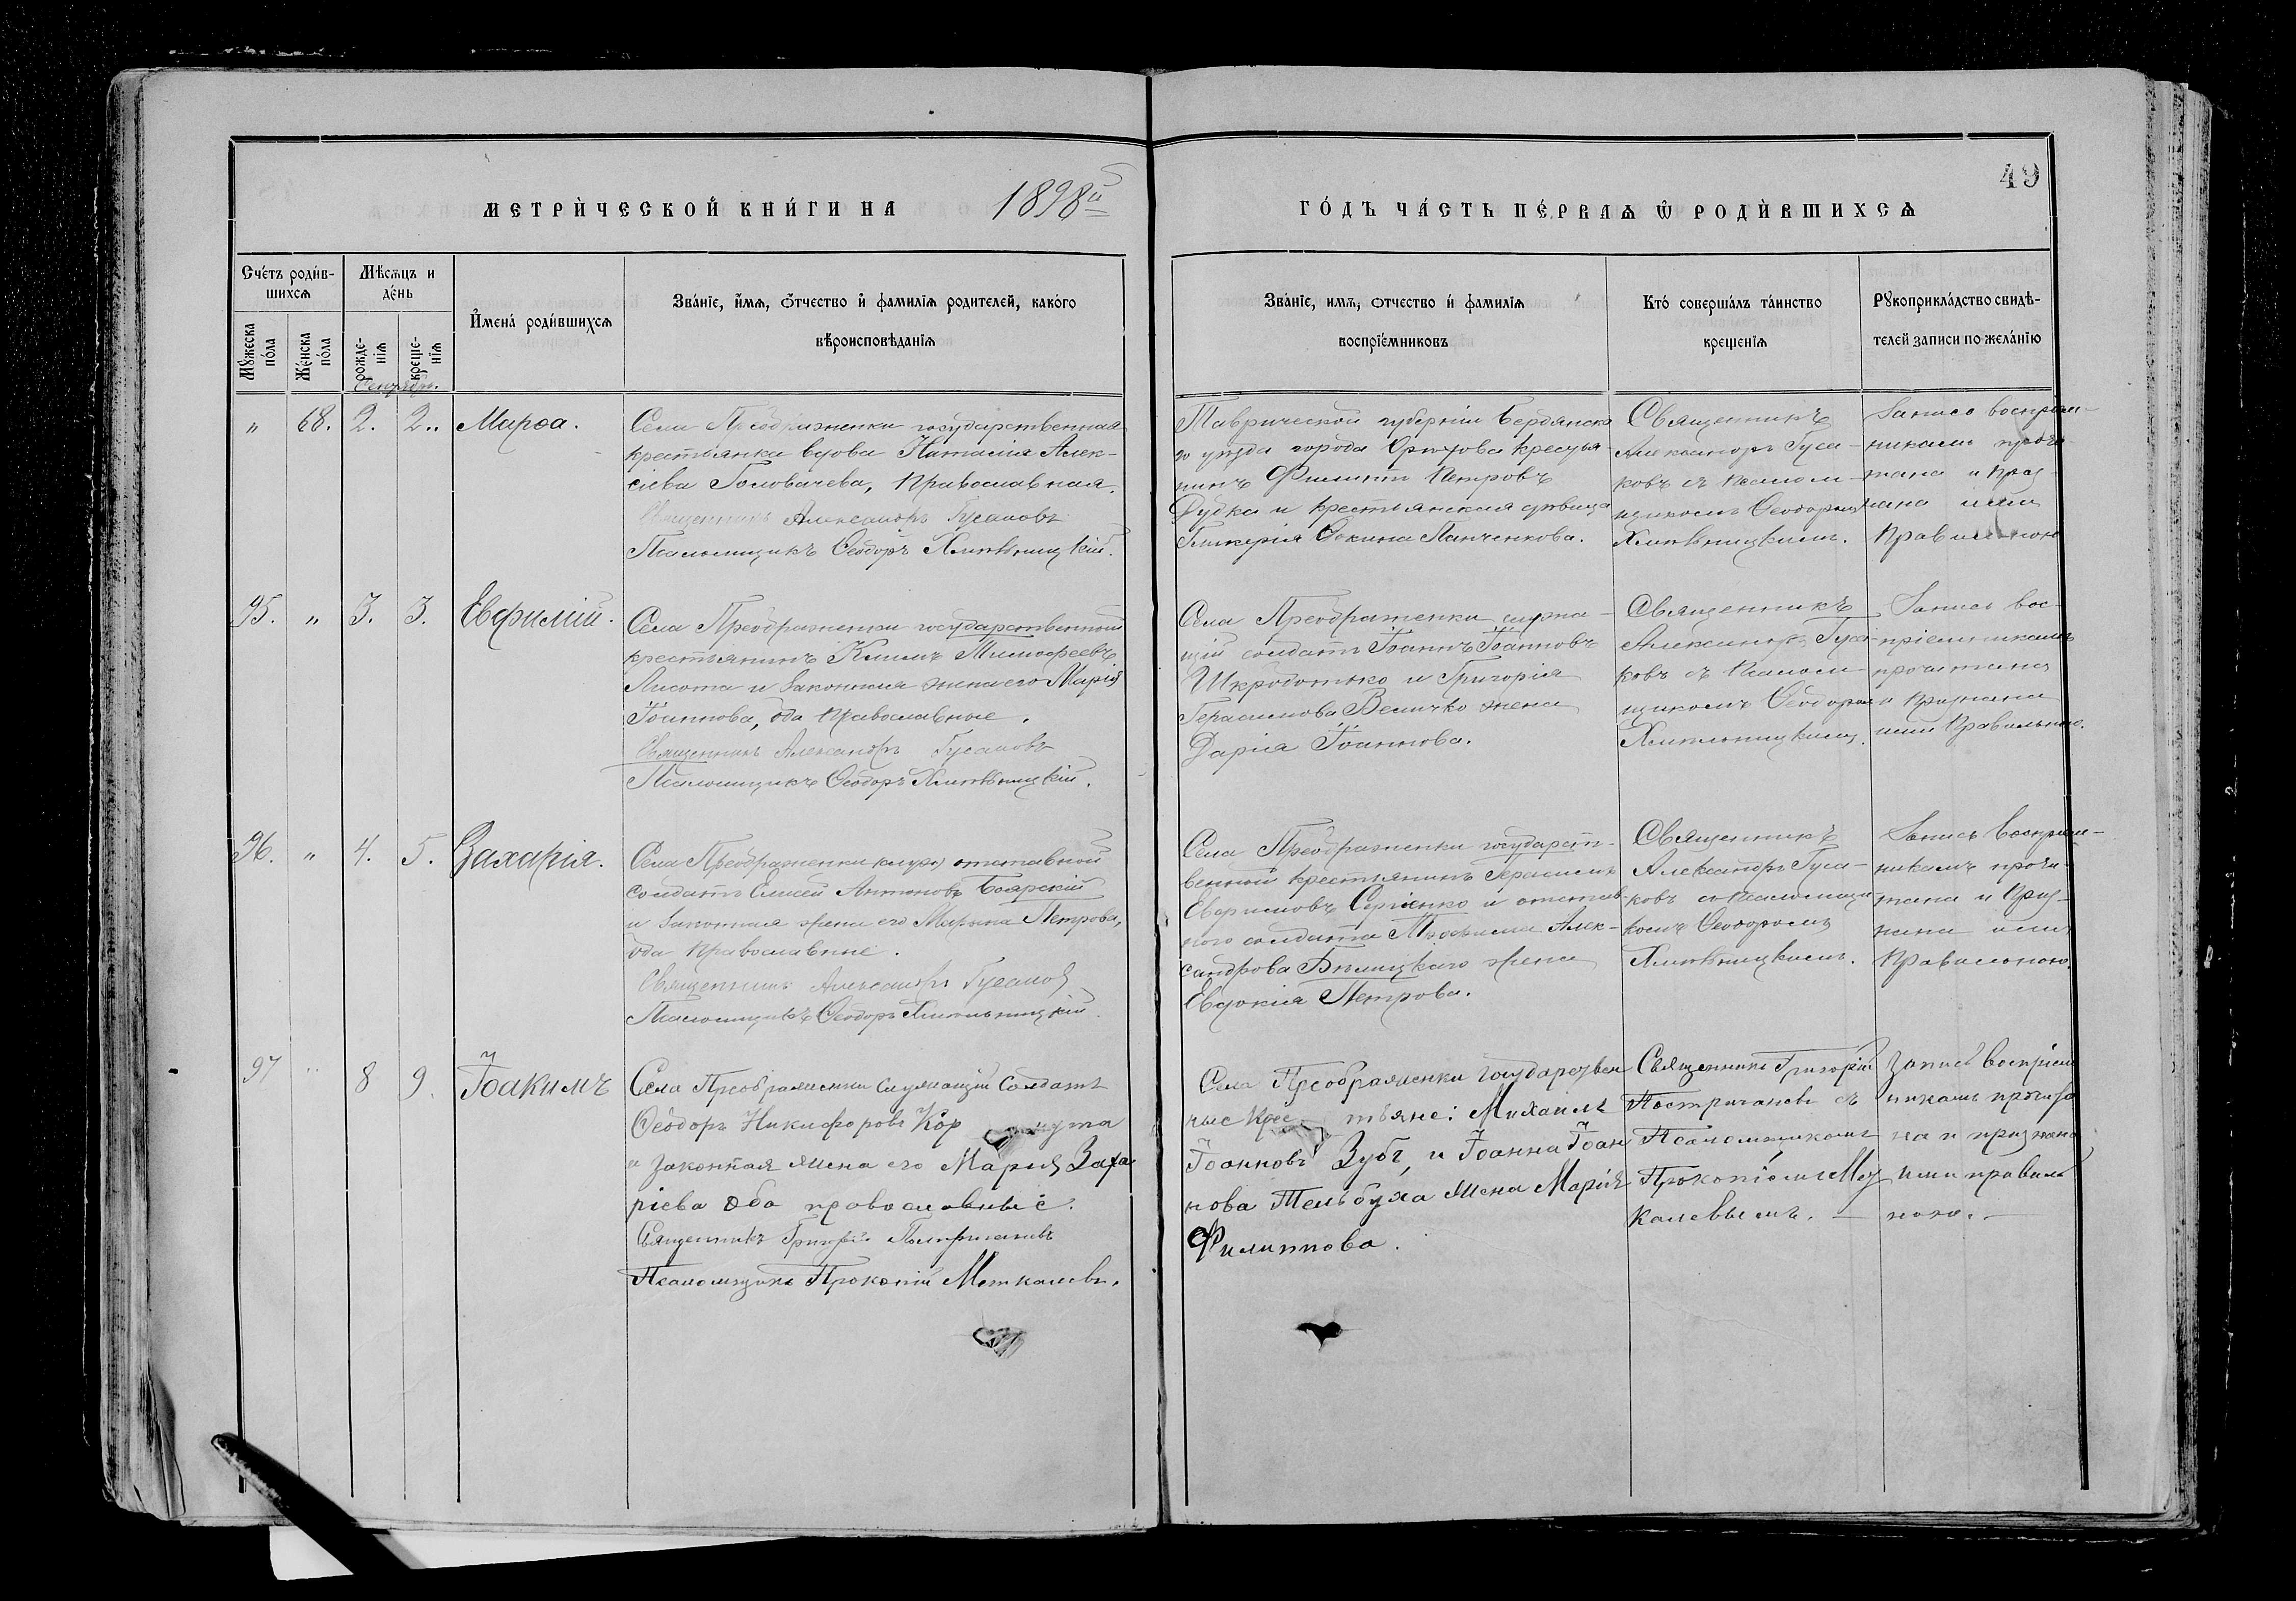 49
МЕТРИ́ЧЕСКОЙ КНИ́ГИ НА 1898й ГО́ДЪ ЧА́СТЬ ПЕ́РВАѦ Ѡ РОДИ́ВШИХСѦ
Сче́тъ роди́в-
шихсѧ
Мꙋ́жеска
по́ла
Же́нска
по́ла
Мѣ́сѧцъ и
де́нь
рожде-
нїѧ
креще-
нїѧ
И҆мена́ роди́вшихсѧ
Зва́нїе, и҆́мѧ, ѻ҆́тчество и҆ фами́лїѧ родителей, како́го
вѣроисповѣ́данїѧ
Зва́нїе, имѧ, ѻтчество и҆ фами́лїѧ
воспрїе́мниковъ
Кто́ соверша́лъ та́инство
креще́нїѧ
Рꙋкоприкла́дство свидѣ-
телей записи по жела́нїю
Сентябрь.
" 68. 2. 2. Марѳа.
Села Преображенки государственная
крестьянка вдова Наталія Алек-
сіева Головачева, Православная.
Священникъ Александръ Гусаковъ
Псаломщикъ Ѳеодоръ Хмѣльницкій.
Таврической губерніи Бердянска-
го уѣзда города Орѣхова крестья-
нинъ Филиппъ Петровъ
Дудка и крестьянская дѣвица
Гликерія Ѳокина Панченкова.
Священникъ
Александръ Гуса-
ковъ съ Псалом-
щикомъ Ѳеодоромъ
Хмѣльницкимъ.
Запись воспріем-
никамъ прочи-
тана и приз-
нана ими
Правильною
95. " 3. 3. Евфимій.
Села Преображенки государственный
крестьянинъ Климъ Тимоѳеевъ
Лисота и законная жена его Марія
Іоаннова, оба Православные.
Священникъ Александръ Гусаковъ
Псаломщикъ Ѳеодоръ Хмѣльницкій.
Села Преображенки служа-
щій солдатъ Іоаннъ Іоанновъ
Шкроботько и Григорія
Герасимова Величко жена
Дарія Іоаннова.
Священникъ
Александръ Гуса-
ковъ съ Псалом-
щикомъ Ѳеодоромъ
Хмѣльницкимъ.
Запись вос-
пріемникамъ
прочитана
и признана
ими Правильною.
96. " 4. 5. Захарія.
Села Преображенки отставной
солдатъ Елисей Антоновъ Боярскій
и законная жена его Марѳа Петрова,
оба Православные.
Священникъ Александръ Гусаковъ
Псаломщикъ Ѳеодоръ Хмѣльницкій.
Села Преображенки государст-
венный крестьянинъ Герасимъ
Евфимовъ Сергіенко и отстав-
ного солдата Трофима Алек-
сандрова Бѣлицкаго жена
Евдокія Петрова.
Священникъ
Александръ Гуса-
ковъ съ Псаломщи-
комъ Ѳеодоромъ
Хмѣльницкимъ.
Запись воспріем-
никамъ прочи-
тана и Приз-
нана ими
Правильною.
97 " 8 9. Іоакимъ
Села Преображенки служащій Солдатъ
Ѳеодоръ Никифоровъ Кор
и законная жена его Марія Заха
ріева оба православные.
Священникъ Григорій Постригановъ
Псаломщикъ Прокопій Моткалевъ.
Села Преображенки государствен
ные крес тьяне: Михаилъ
Іоанновъ Зубъ, и Іоанна Іоан
нова Тельбуха жена Марія
Филиппова.
Священникъ Григорій
Постригановъ съ
Псаломщикомъ
Прокопіемъ Мот
калевымъ. —
Запись воспріем
никамъ прочита
на и признана
ими правиль
ною. —